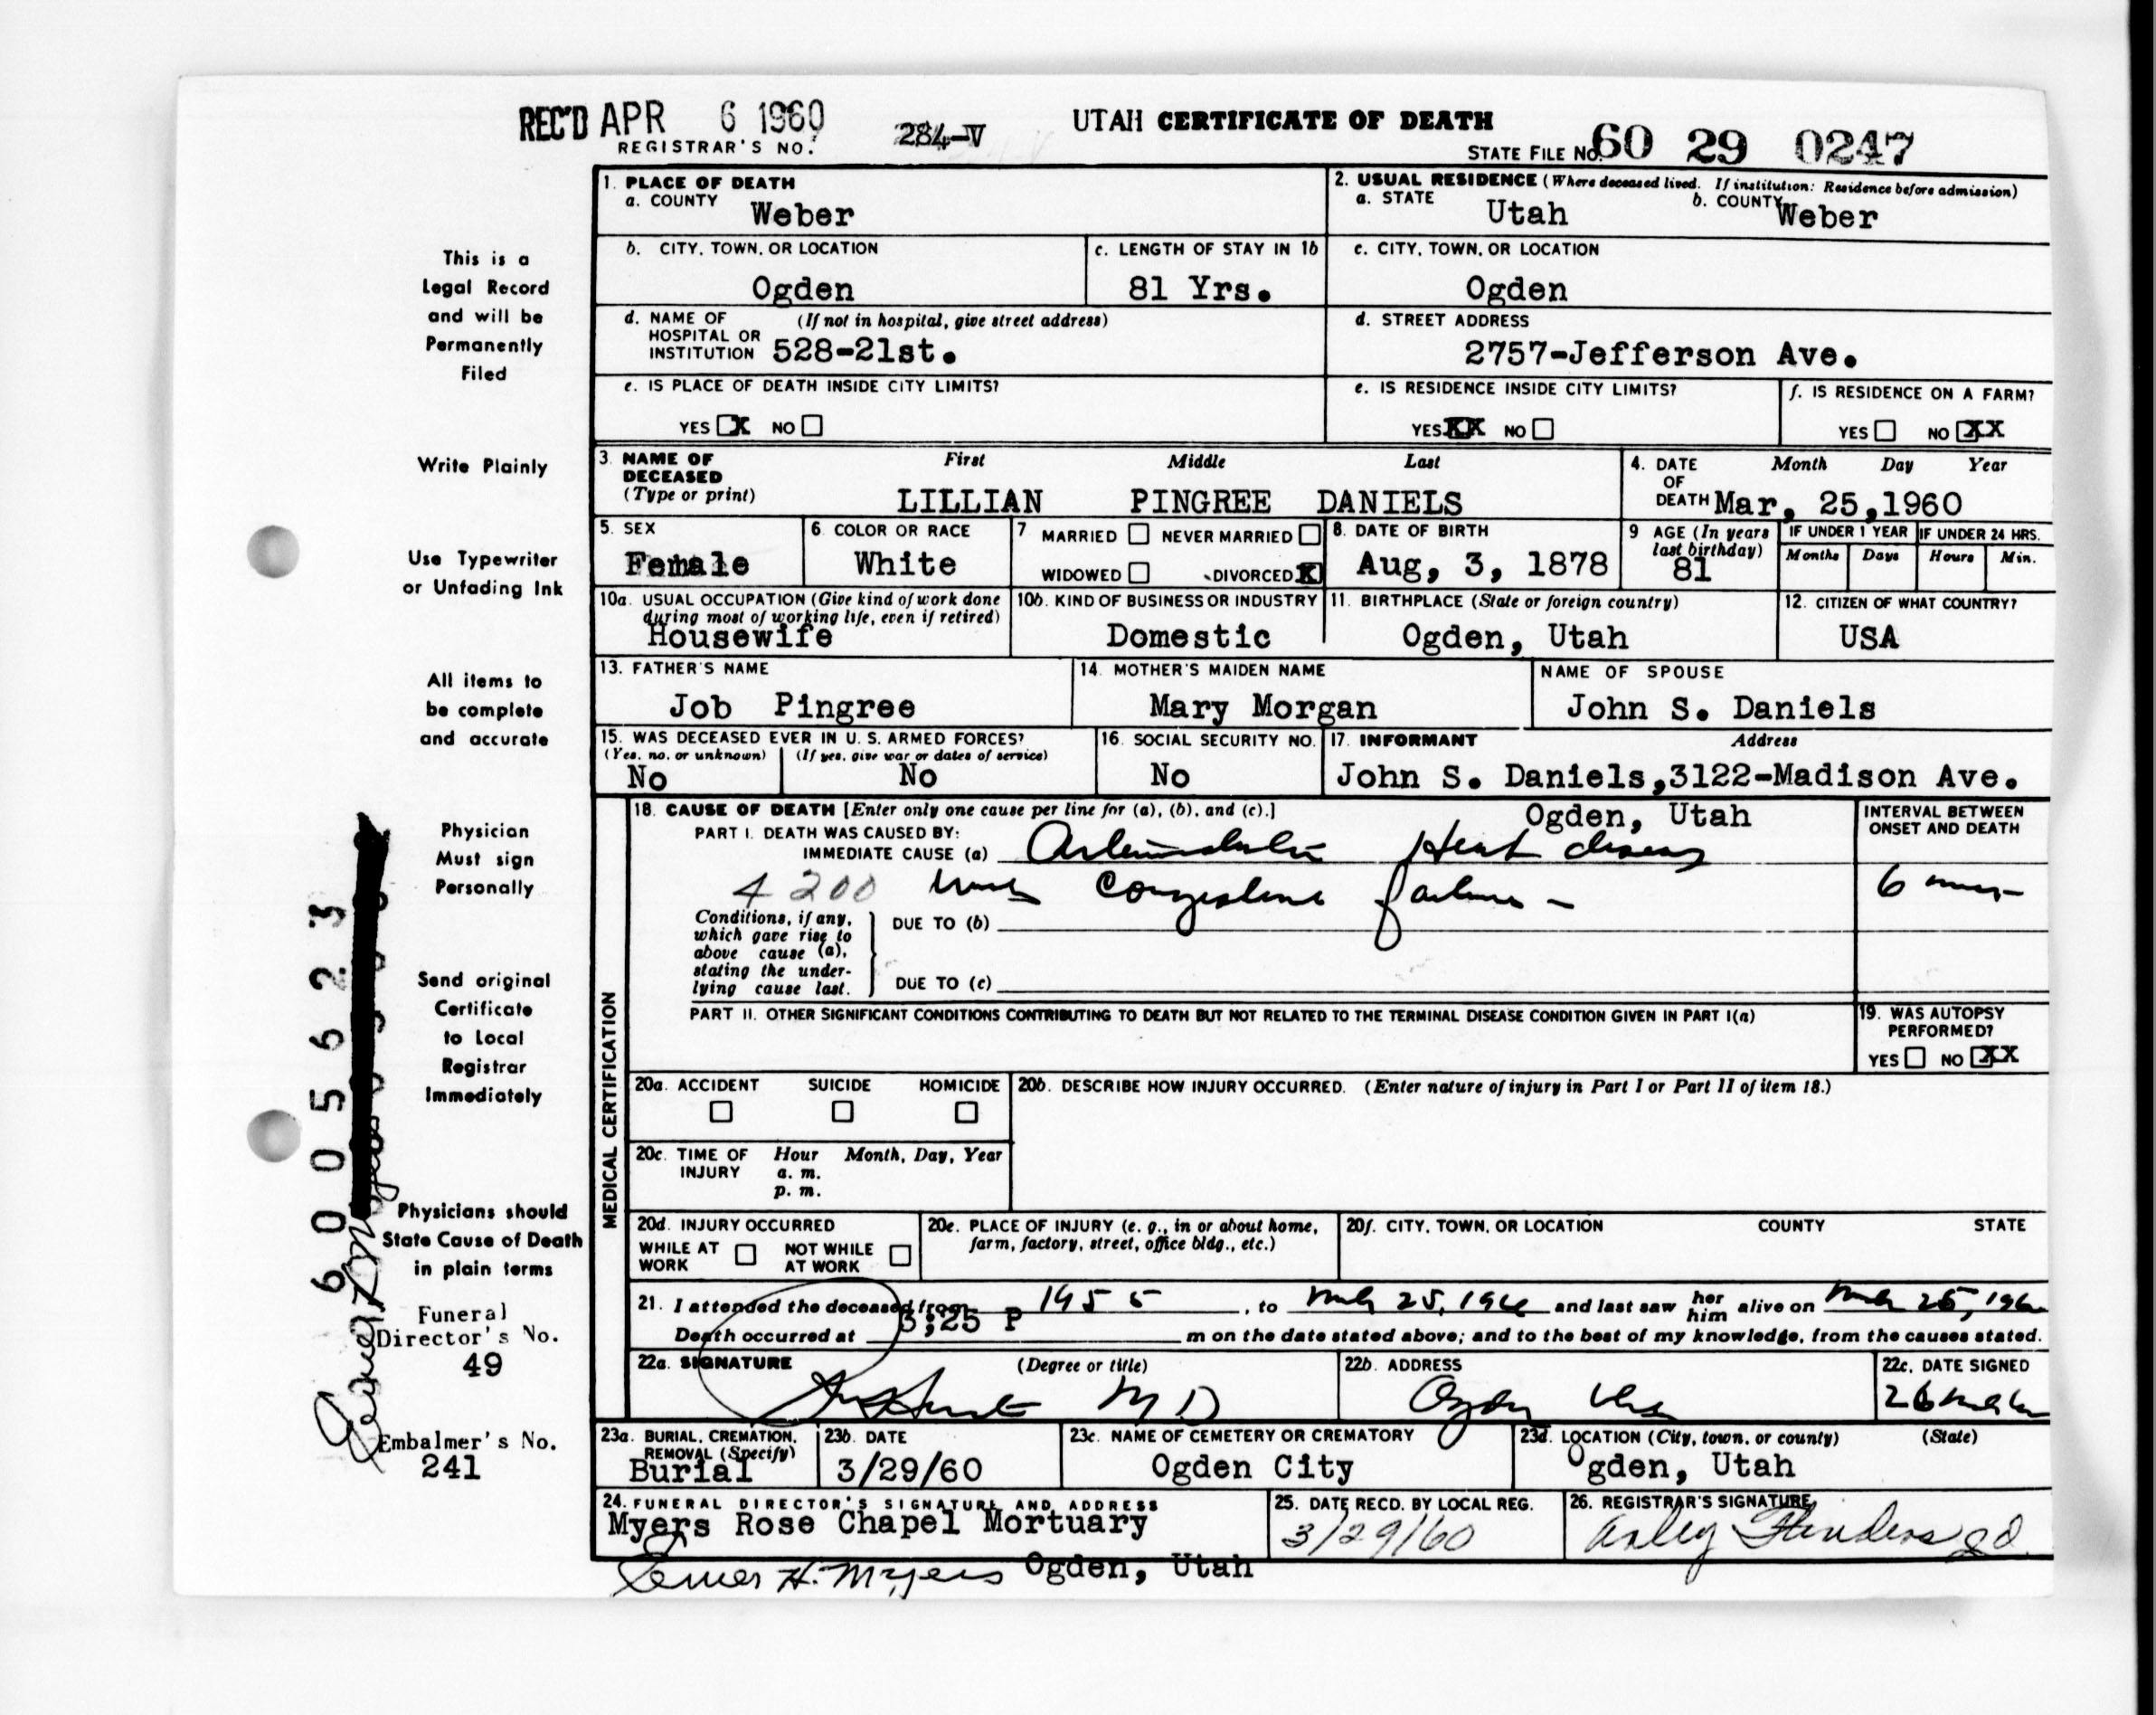 REC'D APR 6 1960
REGISTRAR'S NO. 284-V
UTAH CERTIFICATE OF DEATH
STATE FILE NO. 60 29 0247
This is a
Legal Record
and will be
Permanently
Filed
Write Plainly
Use Typewriter
or Unfading Ink
All items to
be complete
and accurate
Physician
Must sign
Personally
Send original
Certificate
to Local
Registrar
Immediately
Physicians should
State Cause of Death
in plain terms
Funeral
Director's No.
49
Embalmer's No.
241
6005623
1. PLACE OF DEATH
a. COUNTY Weber
2. USUAL RESIDENCE (Where deceased lived. If institution: Residence before admission)
a. STATE Utah b. COUNTY Weber
b. CITY, TOWN, OR LOCATION
Ogden
c. LENGTH OF STAY IN 1b
81 Yrs.
c. CITY, TOWN, OR LOCATION
Ogden
d. NAME OF HOSPITAL OR INSTITUTION (If not in hospital, give street address)
528-21st.
d. STREET ADDRESS
2757-Jefferson Ave.
e. IS PLACE OF DEATH INSIDE CITY LIMITS?
YES X NO
e. IS RESIDENCE INSIDE CITY LIMITS?
YES XX NO
f. IS RESIDENCE ON A FARM?
YES NO XX
3. NAME OF DECEASED (Type or print)
First Middle Last
LILLIAN PINGREE DANIELS
4. DATE OF DEATH Month Day Year
Mar, 25,1960
5. SEX
Female
6. COLOR OR RACE
White
7 MARRIED NEVER MARRIED
WIDOWED DIVORCED X
8. DATE OF BIRTH
Aug, 3, 1878
9 AGE (In years last birthday)
81
IF UNDER 1 YEAR
Months Days
IF UNDER 24 HRS.
Hours Min.
10a. USUAL OCCUPATION (Give kind of work done during most of working life, even if retired)
Housewife
10b. KIND OF BUSINESS OR INDUSTRY
Domestic
11. BIRTHPLACE (State or foreign country)
Ogden, Utah
12. CITIZEN OF WHAT COUNTRY?
USA
13. FATHER'S NAME
Job Pingree
14. MOTHER'S MAIDEN NAME
Mary Morgan
NAME OF SPOUSE
John S. Daniels
15. WAS DECEASED EVER IN U. S. ARMED FORCES?
(Yes, no, or unknown) (If yes, give war or dates of service)
No No
16. SOCIAL SECURITY NO.
No
17. INFORMANT Address
John S. Daniels,3122-Madison Ave.
Ogden, Utah
MEDICAL CERTIFICATION
18. CAUSE OF DEATH [Enter only one cause per line for (a), (b), and (c).]
PART I. DEATH WAS CAUSED BY:
IMMEDIATE CAUSE (a) Heart disease
4200 Congestive failure -
INTERVAL BETWEEN ONSET AND DEATH
6
Conditions, if any, which gave rise to above cause (a), stating the underlying cause last.
DUE TO (b)
DUE TO (c)
PART II. OTHER SIGNIFICANT CONDITIONS CONTRIBUTING TO DEATH BUT NOT RELATED TO THE TERMINAL DISEASE CONDITION GIVEN IN PART I(a)
19. WAS AUTOPSY PERFORMED?
YES NO XX
20a. ACCIDENT SUICIDE HOMICIDE
20b. DESCRIBE HOW INJURY OCCURRED. (Enter nature of injury in Part I or Part II of item 18.)
20c. TIME OF INJURY Hour Month, Day, Year
a. m.
p. m.
20d. INJURY OCCURRED
WHILE AT WORK NOT WHILE AT WORK
20e. PLACE OF INJURY (e. g., in or about home, farm, factory, street, office bldg., etc.)
20f. CITY, TOWN, OR LOCATION COUNTY STATE
21. I attended the deceased from 1955, to 25, 1960 and last saw her him alive on 25, 1960
Death occurred at 3;25 P m on the date stated above; and to the best of my knowledge, from the causes stated.
22a. SIGNATURE (Degree or title)
M D
22b. ADDRESS
Ogden Utah
22c. DATE SIGNED
26
23a. BURIAL, CREMATION, REMOVAL (Specify)
Burial
23b. DATE
3/29/60
23c. NAME OF CEMETERY OR CREMATORY
Ogden City
23d. LOCATION (City, town, or county) (State)
Ogden, Utah
24. FUNERAL DIRECTOR'S SIGNATURE AND ADDRESS
Myers Rose Chapel Mortuary
H. Myers Ogden, Utah
25. DATE RECD. BY LOCAL REG.
3/29/60
26. REGISTRAR'S SIGNATURE